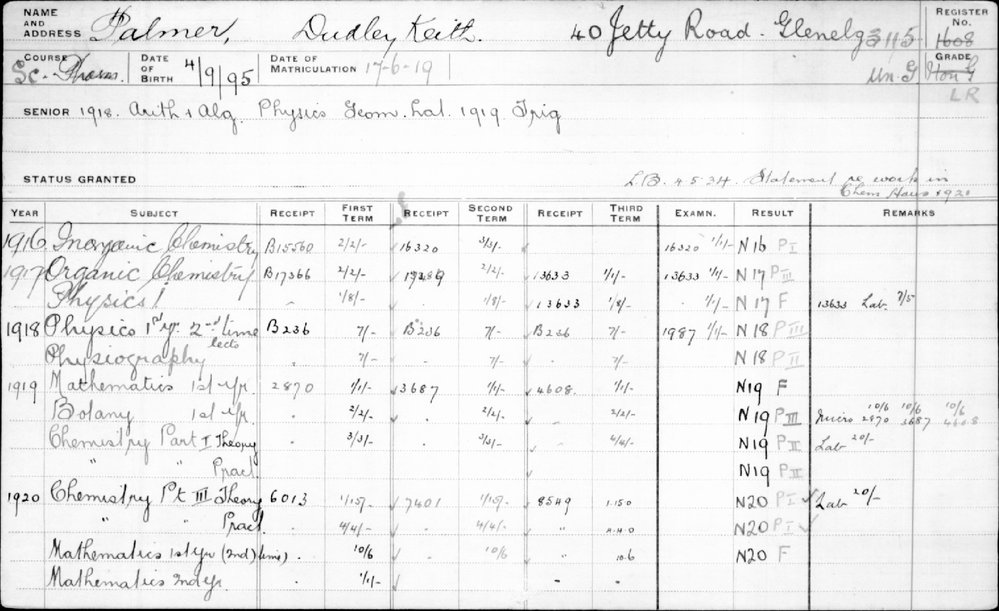 NAME AND ADDRESS Palmer, Dudley Keith. 40 Jetty Road. Glenelg 3115 REGISTER No. 1608
COURSE Sc. Pharm. DATE OF BIRTH 4/9/95 DATE OF MATRICULATION 17-6-19 Un. G GRADE Non G
LR
SENIOR 1918. Arith + Alg. Physics Geom. Lat. 1919 Trig
STATUS GRANTED L.B. 4.5.24. Statement re work in
Chem Hons 1920
YEAR SUBJECT RECEIPT FIRST TERM RECEIPT SECOND TERM RECEIPT THIRD TERM EXAMN. RESULT REMARKS
1916 Inorganic Chemistry B15560 2/2/- 16320 3/3/- 16320 1/1/- N16 PI
1917 Organic Chemistry B17366 2/2/- 17289 2/2/- 13633 1/1/- 13633 1/1/- N17 PIII
Physics I " 1/8/- 1/8/- 13633 1/8/- 1/1/- N17 F 13633 Lab. 7/5
1918 Physics 1st yr. 2nd time B236 7/- B236 7/- B236 7/- 1987 1/1/- N18 PIII
lects
Physiography " 7/- 7/- 7/- N18 PII
1919 Mathematics 1st yr. 2870 1/1/- 3687 1/1/- 4608. 1/1/- N19 F
Botany 1st yr. " 2/2/- 2/2/- 2/2/- N19 PIII Micro 10/6 2870 10/6 3687 10/6 4608
Chemistry Part I Theory " 3/3/- 3/3/- 4/4/- N19 PII Lab 20/-
" " Pract. N19 PII
1920 Chemistry Pt III Theory 6013 1/15/- 7401 1/15/- 8549 1.15.0 N20 PI Lab 20/-
" " Pract. 4/4/- 4/4/- " 4.4.0 N20 PI
Mathematics 1st yr (2nd time) 10/6 10/6 " 10.6 N20 F
Mathematics 2nd yr. 1/1/-